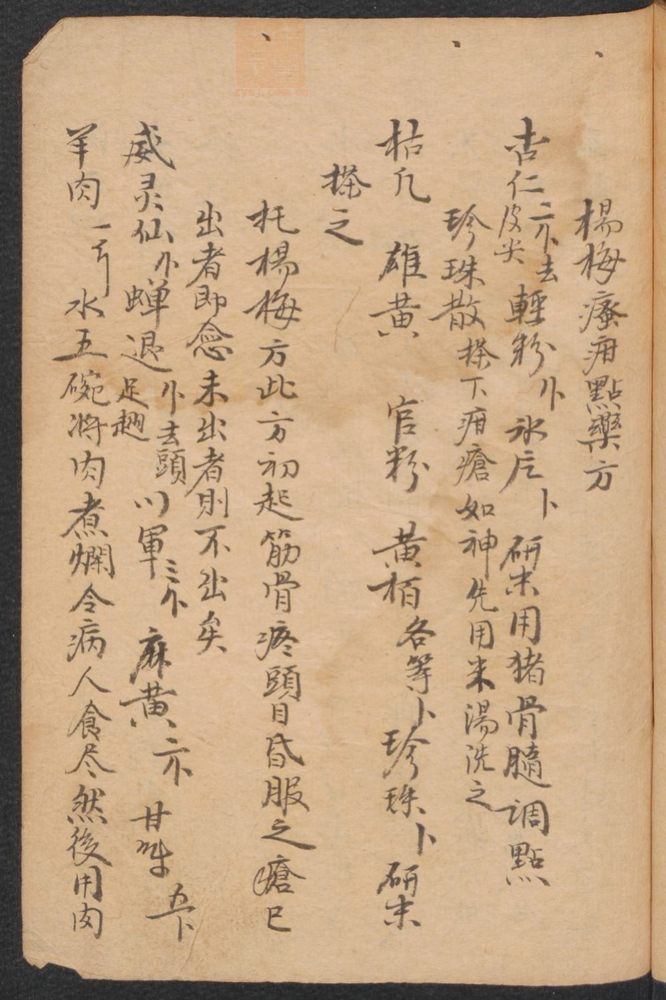 楊梅瘡疳點藥方
杏仁二ホ去皮尖 輕粉卜 氷片卜 研末用猪骨髓調點
珍珠散搽下疳瘡如神先用米湯洗之
枯凡 雄黄 官粉 黄栢各等卜珍珠卜研末
搽之
托楊梅方此方初起筋骨疼頭目昏服之瘡已
出者即愈未出者則不出矣
威灵仙 蟬退 去頭足翅 川軍三 麻黄 甘草 五卜
羊肉一斤水五碗將肉煮爛令病人食尽然後用肉